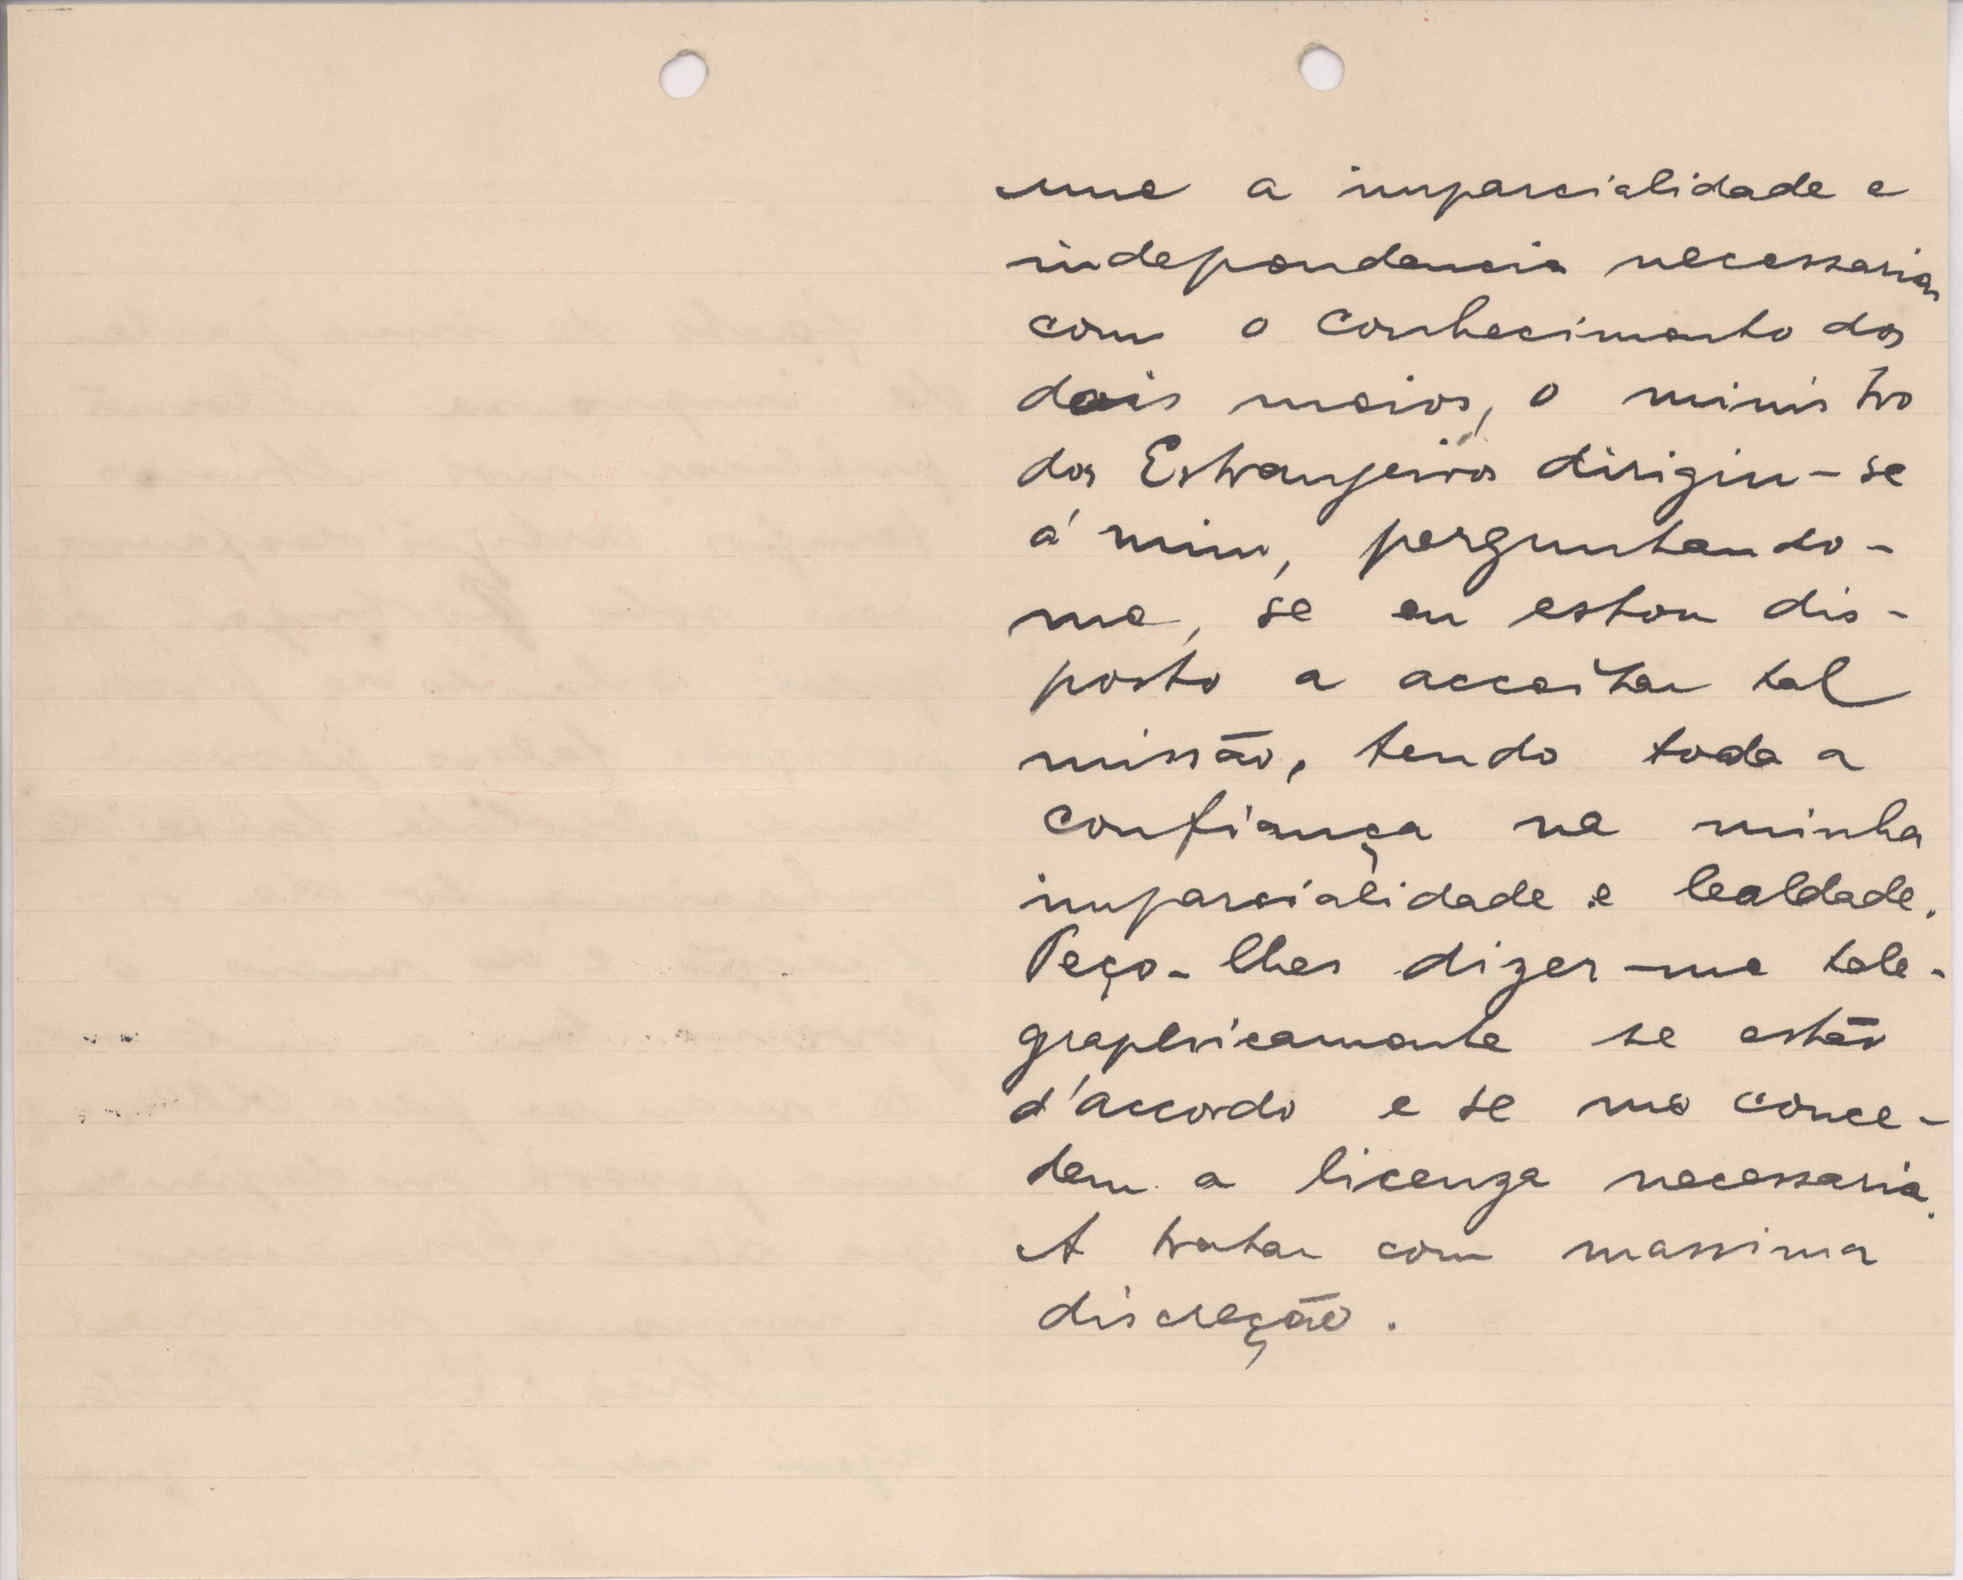 une a imparcialidade e
independencia necessarias
com o conhecimento dos
dois meios, o ministro
dos Estranjeiros dirigiu-se
á mim, perguntando-
me, se eu estou dis-
posto a acceitar tal
missão, tendo toda a
confiança na minha
imparcialidade e lealdade.
Peço-lhes dizer-me tele-
graphicamente se estão
d'accordo e se me conce-
dem a licenza necessaria.
A tratar com massima
discreção.